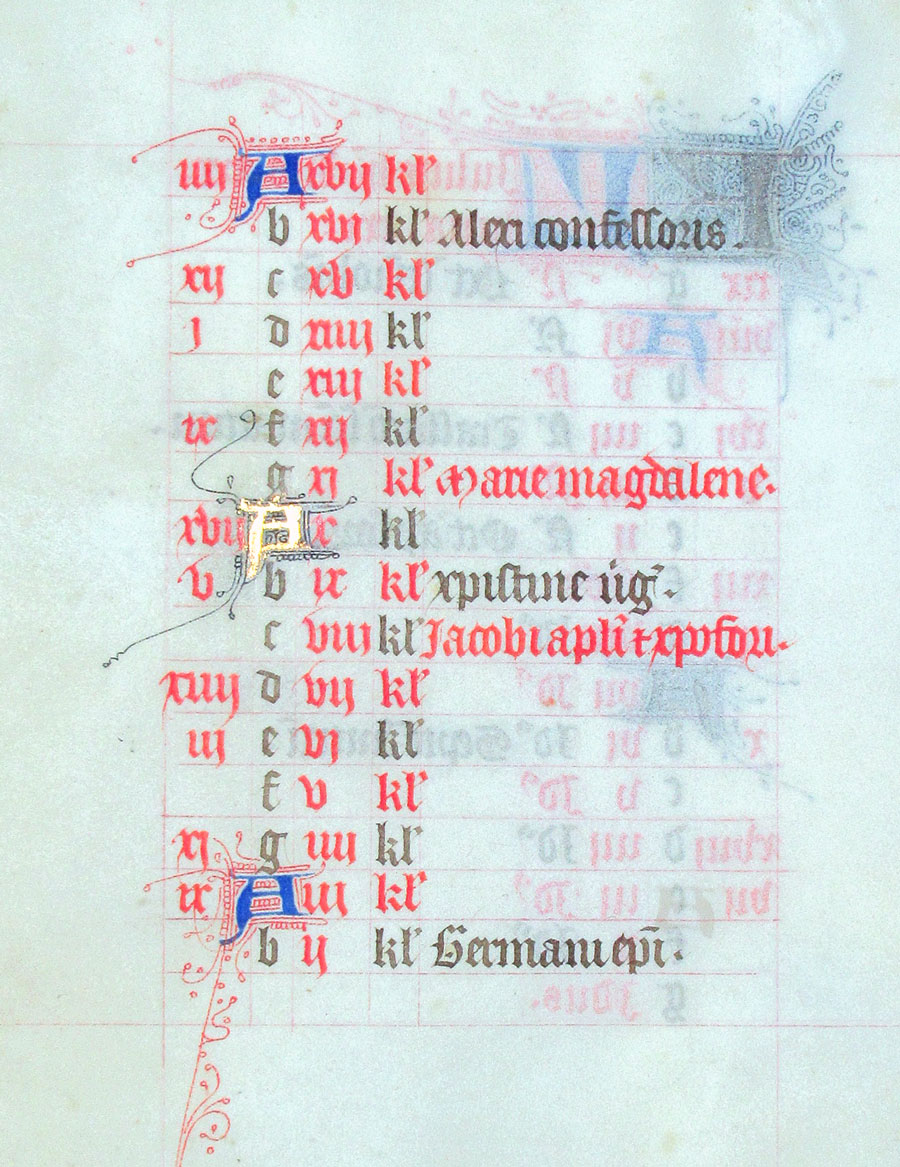 iiij A xvij kl'
b xvi kl' Alexi confessoris.
xij c xv kl'
j d xiiij kl'
e xiij kl'
ix f xij kl'
g xj kl' Marie magdalene.
xvij A x kl'
v b ix kl' xpistine uig'.
c viij kl' Jacobi apl'i et xpofori.
xiiij d vij kl'
iij e vj kl'
f v kl'
xj g iiij kl'
ix A iij kl'
b ij kl' Germani epī.